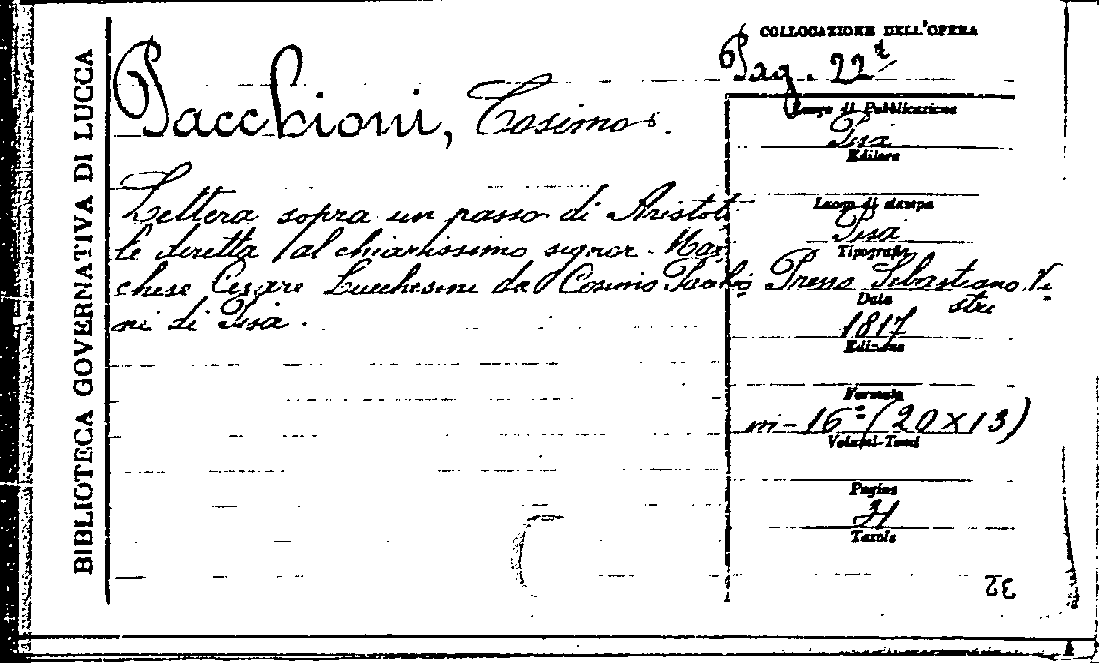 BIBLIOTECA GOVERNATIVA DI LUCCA
COLLOCAZIONE DELL'OPERA
Pag. 22
Pacchioni, Cosimo.
Lettera sopra un passo di Aristote
le diretta al chiarissimo signor Mar
chese Cesare Lucchesini da Cosimo Pacchio
ni di Pisa.
Luogo di Pubblicazione
Pisa
Editore
Luogo di stampa
Pisa
Tipografo
Presso Sebastiano Ni
stri
Data
1817
Edizione
Formato
in-16° (20x13)
Volumi-Tomi
Pagine
Tavole
32